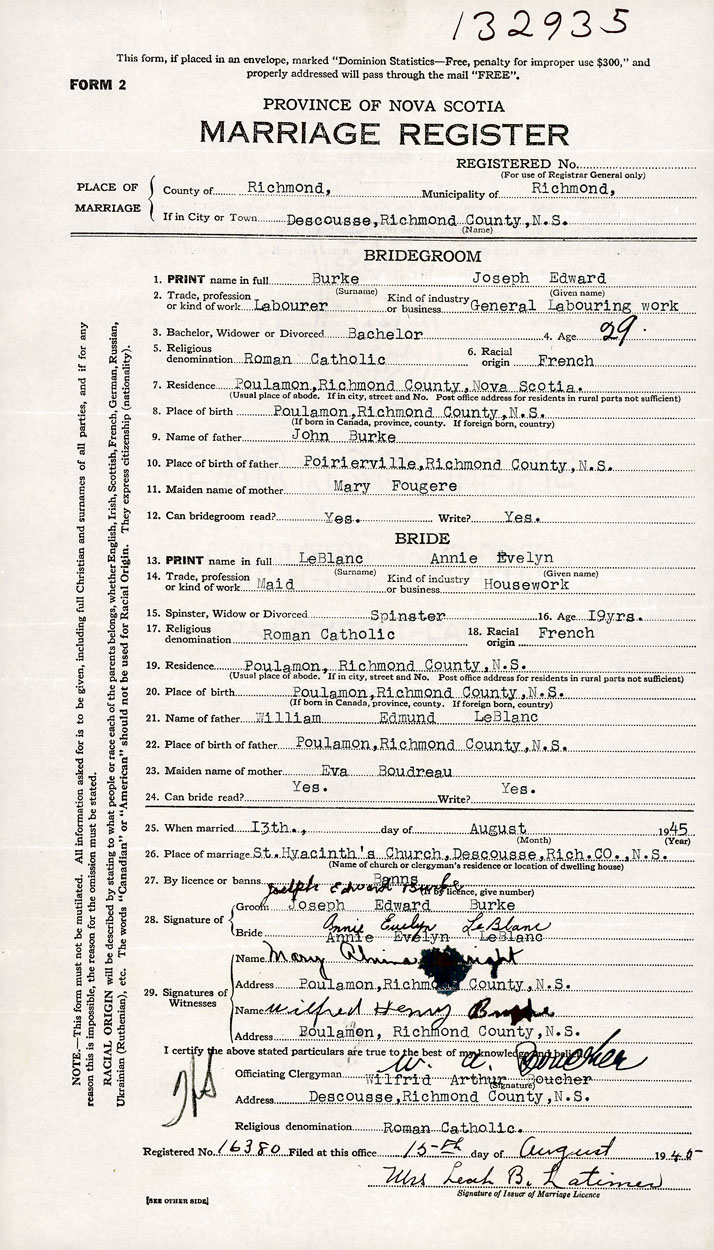 132935
This form, if placed in an envelope, marked "Dominion Statistics—Free, penalty for improper use $300," and
properly addressed will pass through the mail "FREE".
FORM 2
PROVINCE OF NOVA SCOTIA
MARRIAGE REGISTER
REGISTERED No.
(For use of Registrar General only)
PLACE OF MARRIAGE
County of Richmond, Municipality of Richmond,
If in City or Town Descousse,Richmond County,N.S.
(Name)
BRIDEGROOM
1. PRINT name in full Burke Joseph Edward
(Surname) (Given name)
2. Trade, profession or kind of work Labourer Kind of industry or business General Labouring work
3. Bachelor, Widower or Divorced Bachelor 4. Age 29.
5. Religious denomination Roman Catholic 6. Racial origin French
7. Residence Poulamon,Richmond County,Nova Scotia.
(Usual place of abode. If in city, street and No. Post office address for residents in rural parts not sufficient)
8. Place of birth Poulamon,Richmond County,N.S.
(If born in Canada, province, county. If foreign born, country)
9. Name of father John Burke
10. Place of birth of father Poirierville,Richmond County,N.S.
11. Maiden name of mother Mary Fougere
12. Can bridegroom read? Yes. Write? Yes.
BRIDE
13. PRINT name in full LeBlanc Annie Evelyn
(Surname) (Given name)
14. Trade, profession or kind of work Maid Kind of industry or business Housework
15. Spinster, Widow or Divorced Spinster 16. Age I9yrs.
17. Religious denomination Roman Catholic 18. Racial origin French
19. Residence Poulamon, Richmond County,N.S.
(Usual place of abode. If in city, street and No. Post office address for residents in rural parts not sufficient)
20. Place of birth Poulamon,Richmond County,N.S.
(If born in Canada, province, county. If foreign born, country)
21. Name of father William Edmund LeBlanc
22. Place of birth of father Poulamon,Richmond County,N.S.
23. Maiden name of mother Eva Boudreau
24. Can bride read? Yes. Write? Yes.
25. When married I3th., day of August 1945
(Month) (Year)
26. Place of marriage St.Hyacinth's Church,Descousse,Rich.CO.,N.S.
(Name of church or clergyman's residence or location of dwelling house)
27. By licence or banns Banns
(If by licence, give number)
Joseph Edward Burke
28. Signature of Groom Joseph Edward Burke
Annie Evelyn LeBlanc
Bride Annie Evelyn LeBlanc
29. Signatures of Witnesses
Name Mary
Address Poulamon,Richmond County,N.S.
Name Wilfred Henry Burke
Address Poulamon, Richmond County,N.S.
I certify the above stated particulars are true to the best of my knowledge and belief.
W. A. Boucher
Officiating Clergyman Wilfrid Arthur Boucher
(Signature)
Address Descousse,Richmond County,N.S.
Religious denomination Roman Catholic.
Registered No. 16380 Filed at this office 15th day of August 1945
Mrs Leah B. Latimer
Signature of Issuer of Marriage Licence
[SEE OTHER SIDE]
NOTE.—This form must not be mutilated. All information asked for is to be given, including full Christian and surnames of all parties, and if for any
reason this is impossible, the reason for the omission must be stated.
RACIAL ORIGIN will be described by stating to what people or race each of the parents belongs, whether English, Irish, Scottish, French, German, Russian,
Ukrainian (Ruthenian), etc. The words "Canadian" or "American" should not be used for Racial Origin. They express citizenship (nationality).